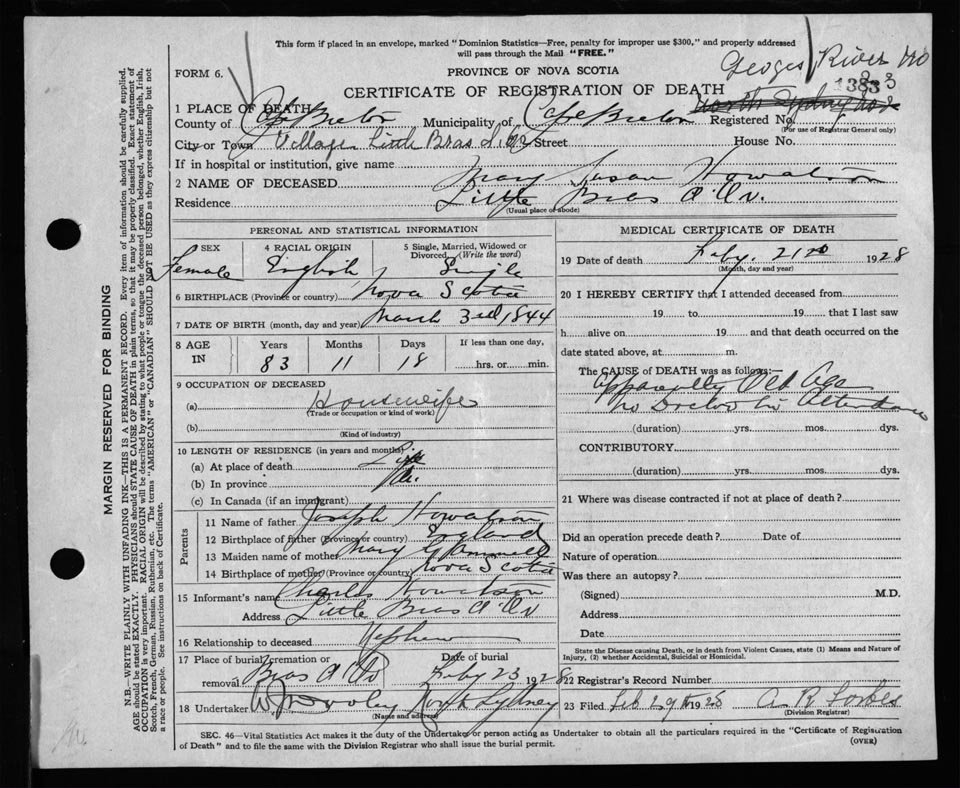 This form if placed in an envelope, marked "Dominion Statistics—Free, penalty for improper use $300," and properly addressed
will pass through the Mail "FREE."
Georges River
FORM 6.
PROVINCE OF NOVA SCOTIA
1383
CERTIFICATE OF REGISTRATION OF DEATH
North Sydney
1 PLACE OF DEATH
County of Cape Breton Municipality of Cape Breton Registered No.
(For use of Registrar General only)
City or Town Village Little Bras d'Or Street House No.
If in hospital or institution, give name
2 NAME OF DECEASED Mary Susan Howatson
Residence Little Bras d'Or.
(Usual place of abode)
PERSONAL AND STATISTICAL INFORMATION
3 SEX 4 RACIAL ORIGIN 5 Single, Married, Widowed or
Divorced (Write the word)
Female English Single
6 BIRTHPLACE (Province or country) Nova Scotia
7 DATE OF BIRTH (month, day and year) March 3rd 1844
8 AGE IN Years Months Days If less than one day,
83 11 18 hrs. or min.
9 OCCUPATION OF DECEASED
(a) Housewife
(Trade or occupation or kind of work)
(b)
(Kind of industry)
10 LENGTH OF RESIDENCE (in years and months)
(a) At place of death Life
(b) In province Do.
(c) In Canada (if an immigrant)
Parents
11 Name of father Joseph Howatson
12 Birthplace of father (Province or country) England
13 Maiden name of mother Mary Gammell
14 Birthplace of mother (Province or country) Nova Scotia
15 Informant's name Charles Howatson
Address Little Bras d'Or
16 Relationship to deceased Nephew
17 Place of burial, cremation or Date of burial
removal Bras d'Or Feby 23 1928
18 Undertaker W. Dooley North Sydney
(Name and address)
MEDICAL CERTIFICATE OF DEATH
19 Date of death Feby. 21st 1928
(Month, day and year)
20 I HEREBY CERTIFY that I attended deceased from
19 to 19 that I last saw
h alive on 19 and that death occurred on the
date stated above, at m.
The CAUSE of DEATH was as follows:—
Apparently Old Age
No Doctor in Attendance
(duration) yrs. mos. dys.
CONTRIBUTORY
(duration) yrs. mos. dys.
21 Where was disease contracted if not at place of death?
Did an operation precede death? Date of
Nature of operation
Was there an autopsy?
(Signed) M.D.
Address
Date
State the Disease causing Death, or in death from Violent Causes, state (1) Means and Nature of
Injury, (2) whether Accidental, Suicidal or Homicidal.
22 Registrar's Record Number
23 Filed Feb 29th 1928 A. R. Forbes
(Division Registrar)
SEC. 46—Vital Statistics Act makes it the duty of the Undertaker or person acting as Undertaker to obtain all the particulars required in the "Certificate of Registration
of Death" and to file the same with the Division Registrar who shall issue the burial permit. (OVER)
MARGIN RESERVED FOR BINDING
N.B.—WRITE PLAINLY WITH UNFADING INK—THIS IS A PERMANENT RECORD. Every item of information should be carefully supplied.
AGE should be stated EXACTLY. PHYSICIANS should STATE CAUSE OF DEATH in plain terms, so that it may be properly classified. Exact statement of
OCCUPATION is very important. RACIAL ORIGIN will be described by stating to what people or tongue the deceased person belonged, whether English, Irish,
Scotch, French, German, Russian, Ruthenian, etc. The terms "AMERICAN" or "CANADIAN" SHOULD NOT BE USED as they express citizenship but not
a race or people. See instructions on back of Certificate.